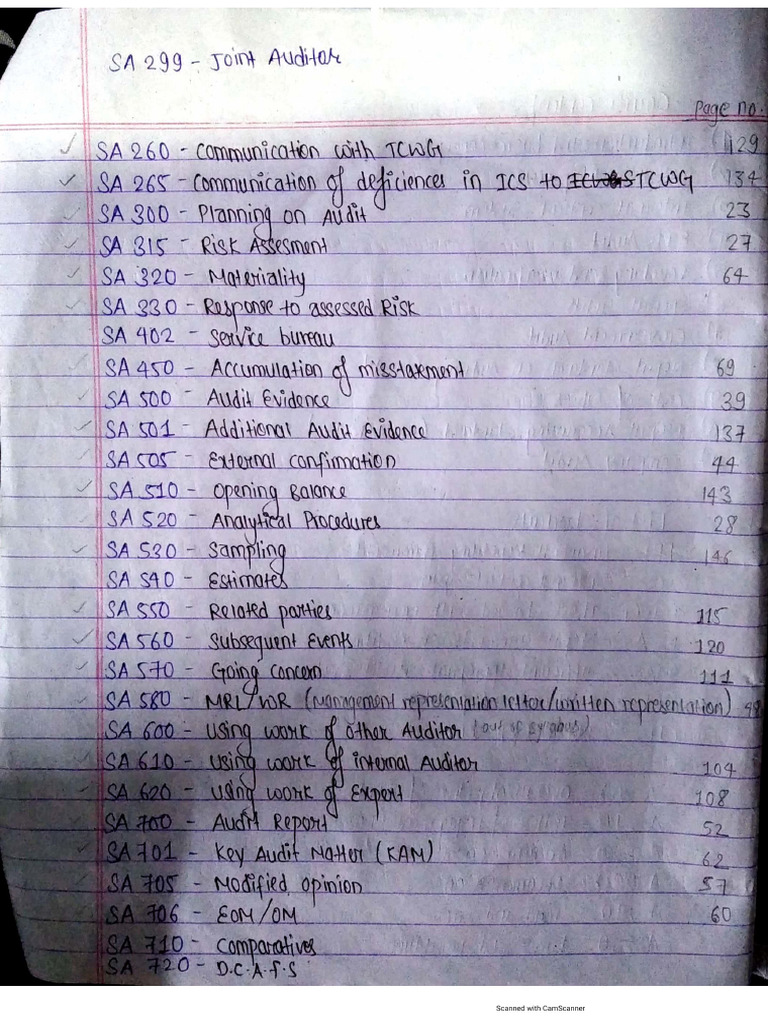 SA 299 - Joint Auditor
Page no.
SA 260 - Communication with TCWG 129
SA 265 - Communication of deficiences in ICS to TCWG 134
SA 300 - Planning on Audit 23
SA 315 - Risk Assesment 27
SA 320 - Materiality 64
SA 330 - Response to assessed Risk
SA 402 - Service bureau
SA 450 - Accumulation of misstatement 69
SA 500 - Audit Evidence 39
SA 501 - Additional Audit Evidence 137
SA 505 - External confirmation 44
SA 510 - Opening Balance 143
SA 520 - Analytical Procedures 28
SA 530 - Sampling 146
SA 540 - Estimates
SA 550 - Related parties 115
SA 560 - Subsequent Events 120
SA 570 - Going concern 111
SA 580 - MRL/WR (Management representation letter/written representation) 48
SA 600 - Using work of other Auditor (out of syllabus)
SA 610 - Using work of internal Auditor 104
SA 620 - Using work of Expert 108
SA 700 - Audit Report 52
SA 701 - Key Audit Matter (KAM) 62
SA 705 - Modified Opinion 57
SA 706 - EOM/OM 60
SA 710 - Comparatives
SA 720 - D.C.A.F.S
Scanned with CamScanner